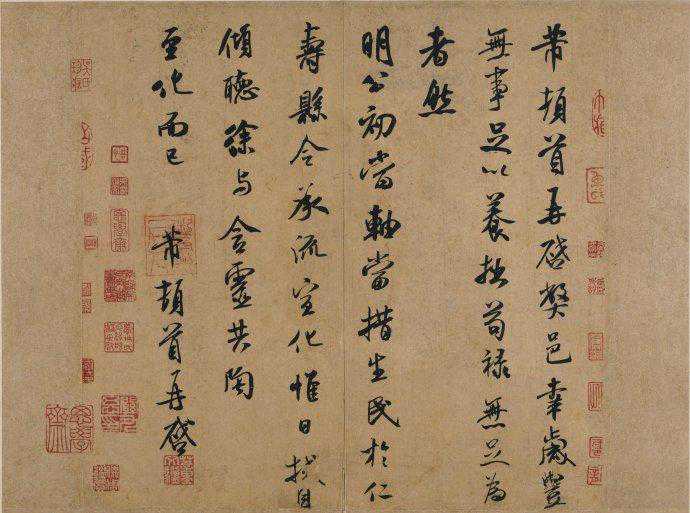 芾頓首再啓弊邑幸歲豐
無事足以養拙苟祿無足爲
者然
明公初當軸當措生民於仁
壽縣令承流宣化惟日拭目
傾聽徐與含靈共陶
至化而已
芾頓首再啓